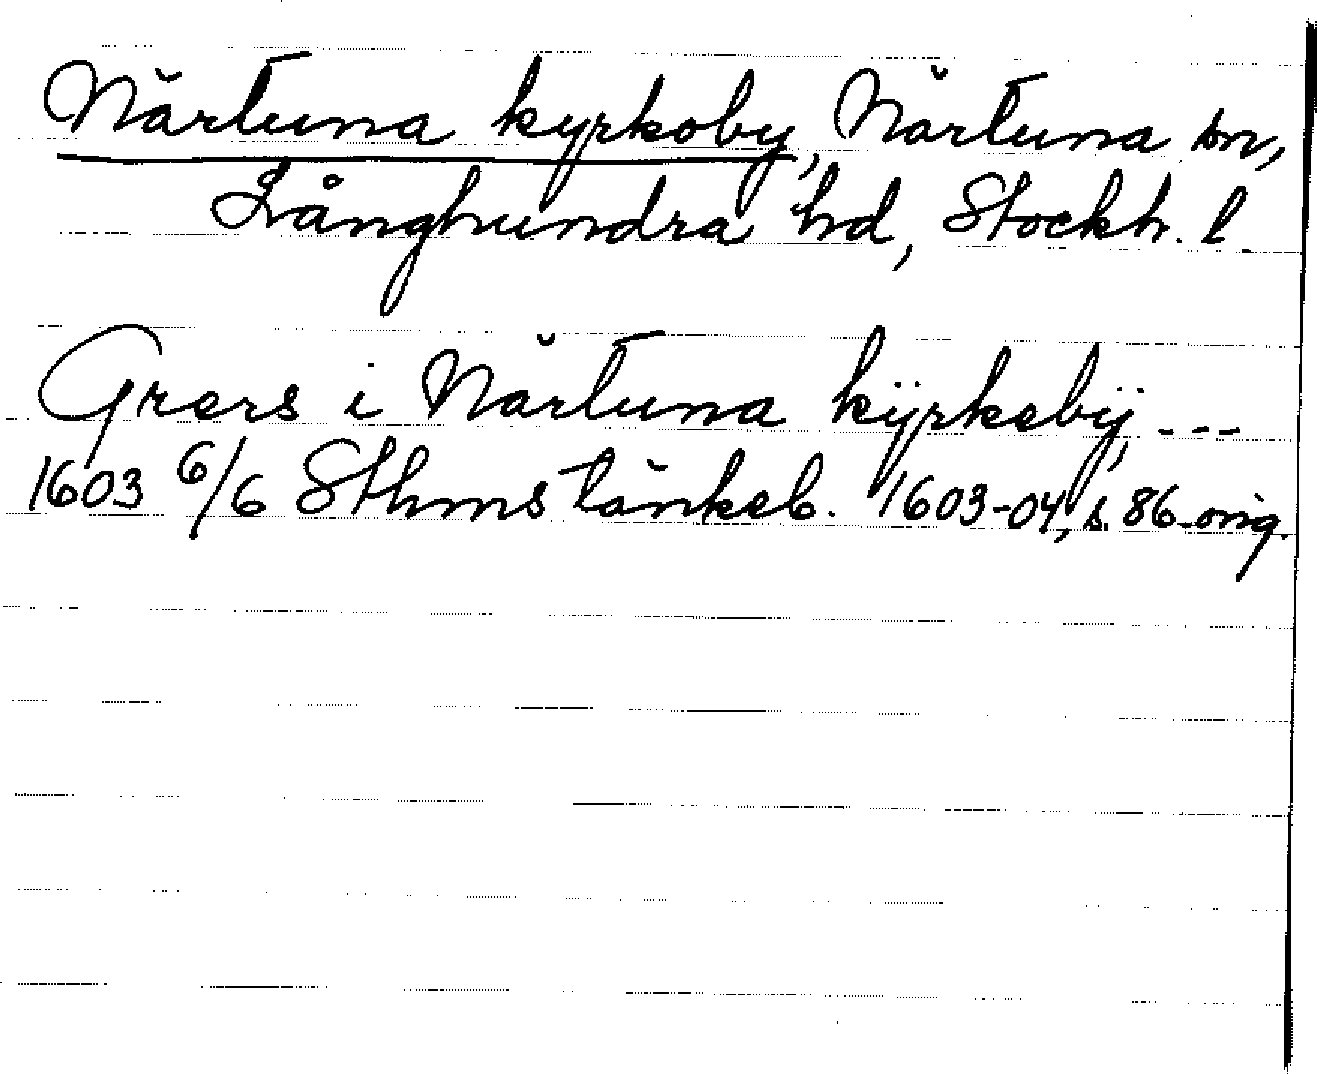 Närtuna kyrkoby, Närtuna sn,
Långhundra hd, Stockh. l.
Grers i Närtuna kÿrkebÿ ---
1603 6/6 Sthms tänkeb. 1603-04, s. 86 orig.